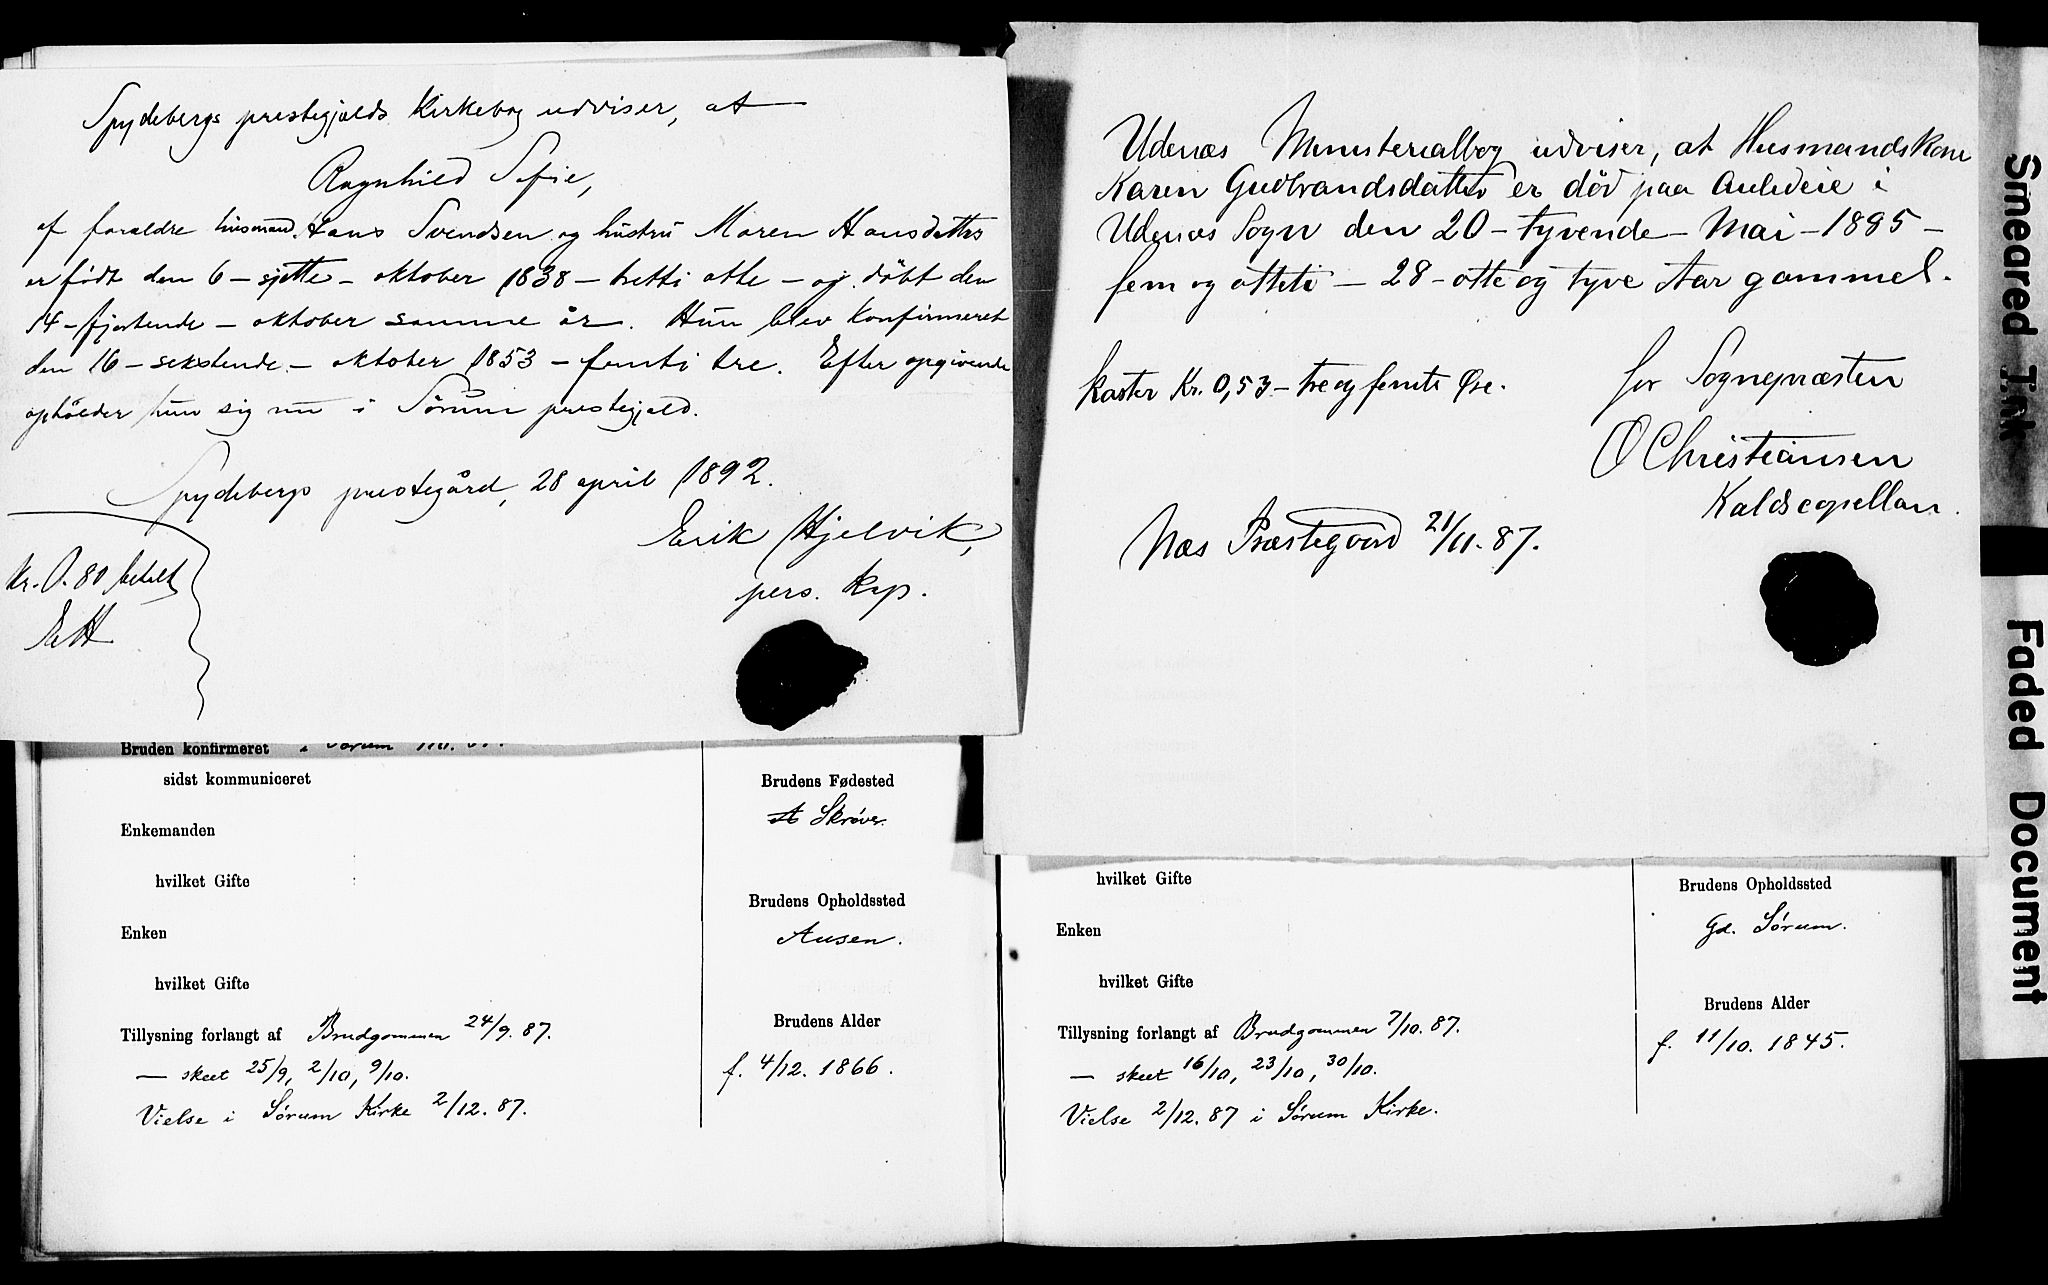 Spydebergs prestegjælds Kirkebog udviser, at
Ragnhild Sofie,
af foreldre husmand Hans Svendsen og hustru Maren Hansdatter
er født den 6 – sjette – oktober 1838 – tretti otte – og døbt den
14 – fjortende – oktober samme år. Hun blev konfirmeret
den 16 – sekstende – oktober 1853 – femti tre. Efter opgivende
opholder hun sig nu i Sørum prestegjeld.
Spydebergs prestegård, 28 april 1892.
Erik Hjelvik,
pers. kap.
Kr. 0.80 betalt
EH
Bruden konfirmeret i Sørum
sidst kommuniceret
Enkemanden
hvilket Gifte
Enken
hvilket Gifte
Tillysning forlangt af Brudgommen 24/9. 87.
— skeet 25/9, 2/10, 9/10.
Vielse i Sørum Kirke 2/12. 87.
Brudens Fødested
Skrøver
Brudens Opholdssted
Ausen.
Brudens Alder
f. 4/12. 1866.
Udenæs Ministerialbog udviser, at Husmandskone
Karen Gudbrandsdatter er død paa Auleeie i
Udenæs Sogn den 20 – tyvende – Mai – 1885 –
fem og otteti – 28 – otte og tyve Aar gammel.
koster Kr. 0,53 – tre og femti Øre.
for Sognepræsten
O Christiansen
Kaldscapellan.
Næs Præstegaard 21/11. 87.
hvilket Gifte
Enken
hvilket Gifte
Tillysning forlangt af Brudgommen 7/10. 87.
— skeet 16/10, 23/10, 30/10.
Vielse 2/12. 87 i Sørum Kirke.
Brudens Opholdssted
Gd. Sørum.
Brudens Alder
f. 11/10. 1845.
Smeared Ink
Faded Document